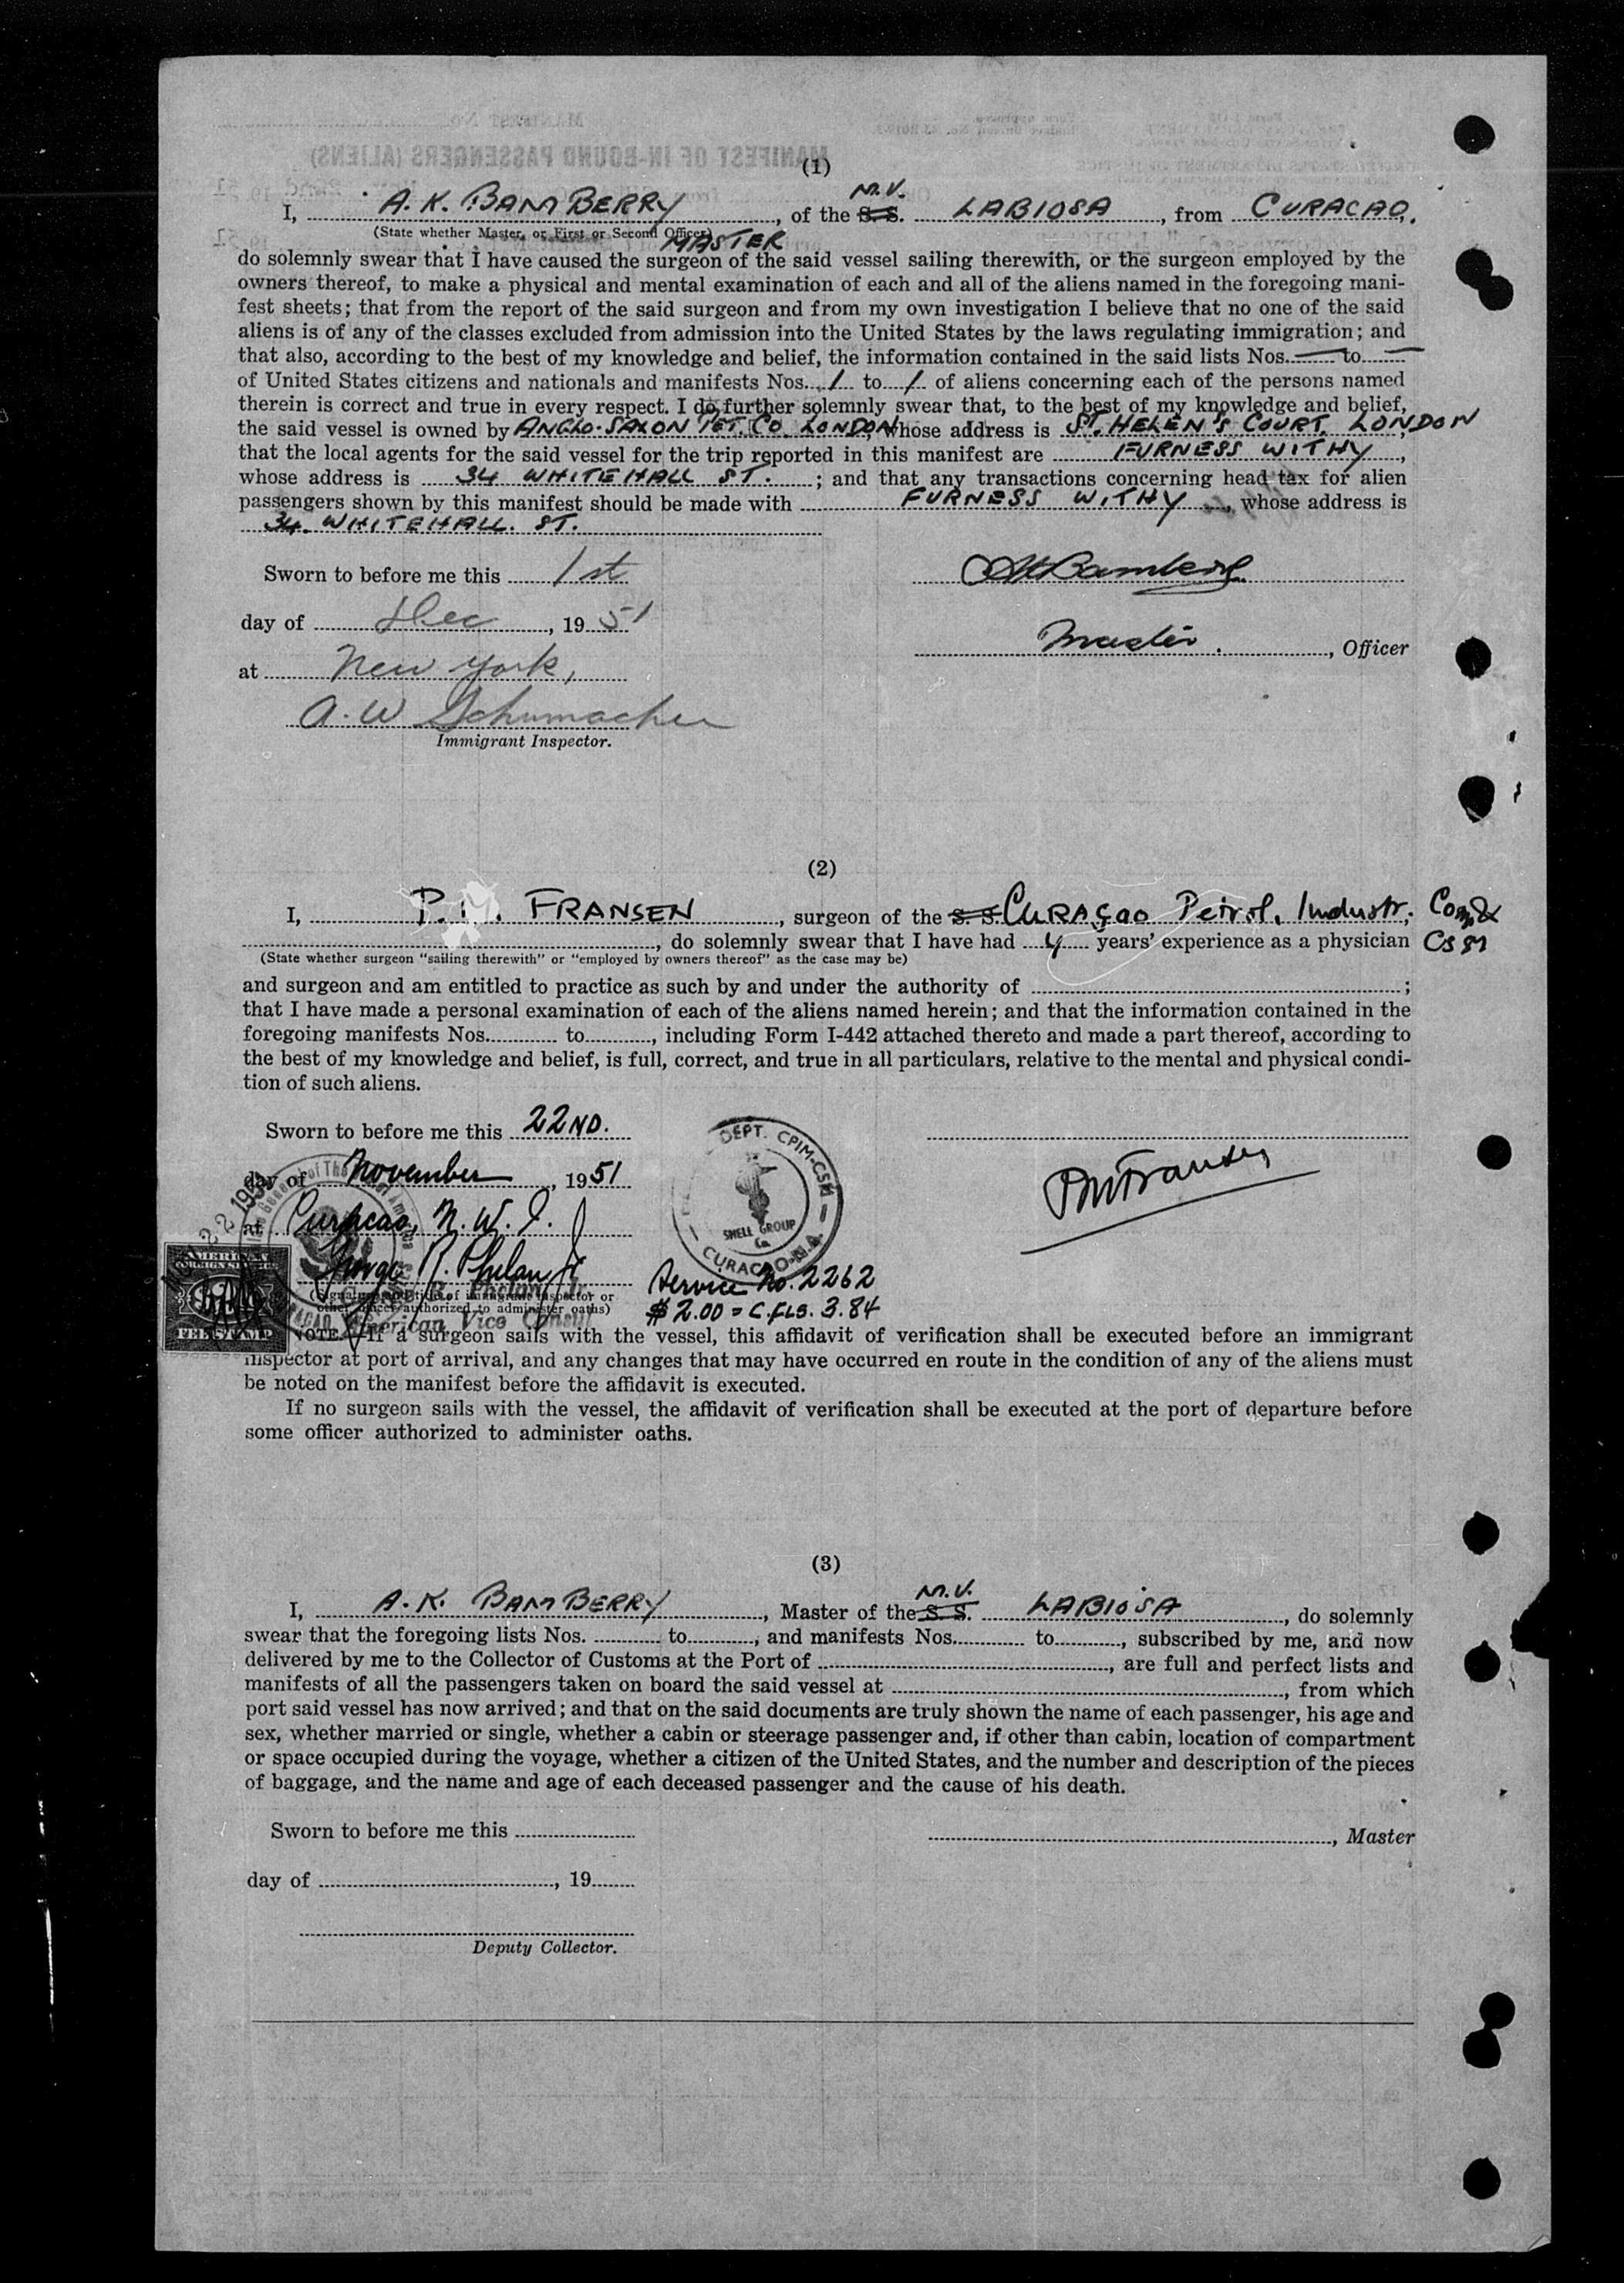 (1)
M.V.
I, A. K. BAMBERRY, of the S. S. LABIOSA, from CURACAO.
(State whether Master, or First or Second Officer)
MASTER
do solemnly swear that I have caused the surgeon of the said vessel sailing therewith, or the surgeon employed by the
owners thereof, to make a physical and mental examination of each and all of the aliens named in the foregoing mani-
fest sheets; that from the report of the said surgeon and from my own investigation I believe that no one of the said
aliens is of any of the classes excluded from admission into the United States by the laws regulating immigration; and
that also, according to the best of my knowledge and belief, the information contained in the said lists Nos. — to —
of United States citizens and nationals and manifests Nos. 1 to 1 of aliens concerning each of the persons named
therein is correct and true in every respect. I do further solemnly swear that, to the best of my knowledge and belief,
the said vessel is owned by ANGLO-SAXON PET. CO. LONDON, whose address is ST. HELEN'S COURT. LONDON
that the local agents for the said vessel for the trip reported in this manifest are FURNESS WITHY,
whose address is 34 WHITEHALL ST.; and that any transactions concerning head tax for alien
passengers shown by this manifest should be made with FURNESS WITHY, whose address is
34 WHITEHALL. ST.
Sworn to before me this 1st
AK Bamberry
day of Dec, 19 51
Master., Officer
at New York,
A. W Schumacher
Immigrant Inspector.
(2)
I, P. FRANSEN, surgeon of the S. S. CURAÇAO Petrol. Industr. Comp &
, do solemnly swear that I have had 4 years' experience as a physician CSM
(State whether surgeon "sailing therewith" or "employed by owners thereof" as the case may be)
and surgeon and am entitled to practice as such by and under the authority of ;
that I have made a personal examination of each of the aliens named herein; and that the information contained in the
foregoing manifests Nos. to , including Form I-442 attached thereto and made a part thereof, according to
the best of my knowledge and belief, is full, correct, and true in all particulars, relative to the mental and physical condi-
tion of such aliens.
Sworn to before me this 22ND.
DEPT. CPIM-CSM
SHELL GROUP
CURACAO-N.A.
PM Fransen
day of November, 1951
22 1951
at Curacao, N. W. I.
George R. Phelan Jr
George R. Phelan, Jr.
(Signature and title of immigrant inspector or
other officer authorized to administer oaths)
American Vice Consul
AMERICAN
FOREIGN SERVICE
FEE STAMP
Service No. 2262
$ 2.00 = C.FLS. 3.84
NOTE.—If a surgeon sails with the vessel, this affidavit of verification shall be executed before an immigrant
inspector at port of arrival, and any changes that may have occurred en route in the condition of any of the aliens must
be noted on the manifest before the affidavit is executed.
If no surgeon sails with the vessel, the affidavit of verification shall be executed at the port of departure before
some officer authorized to administer oaths.
(3)
M.V.
I, A. K. BAMBERRY, Master of the S. S. LABIOSA, do solemnly
swear that the foregoing lists Nos. to , and manifests Nos. to , subscribed by me, and now
delivered by me to the Collector of Customs at the Port of , are full and perfect lists and
manifests of all the passengers taken on board the said vessel at , from which
port said vessel has now arrived; and that on the said documents are truly shown the name of each passenger, his age and
sex, whether married or single, whether a cabin or steerage passenger and, if other than cabin, location of compartment
or space occupied during the voyage, whether a citizen of the United States, and the number and description of the pieces
of baggage, and the name and age of each deceased passenger and the cause of his death.
Sworn to before me this
, Master
day of , 19
Deputy Collector.